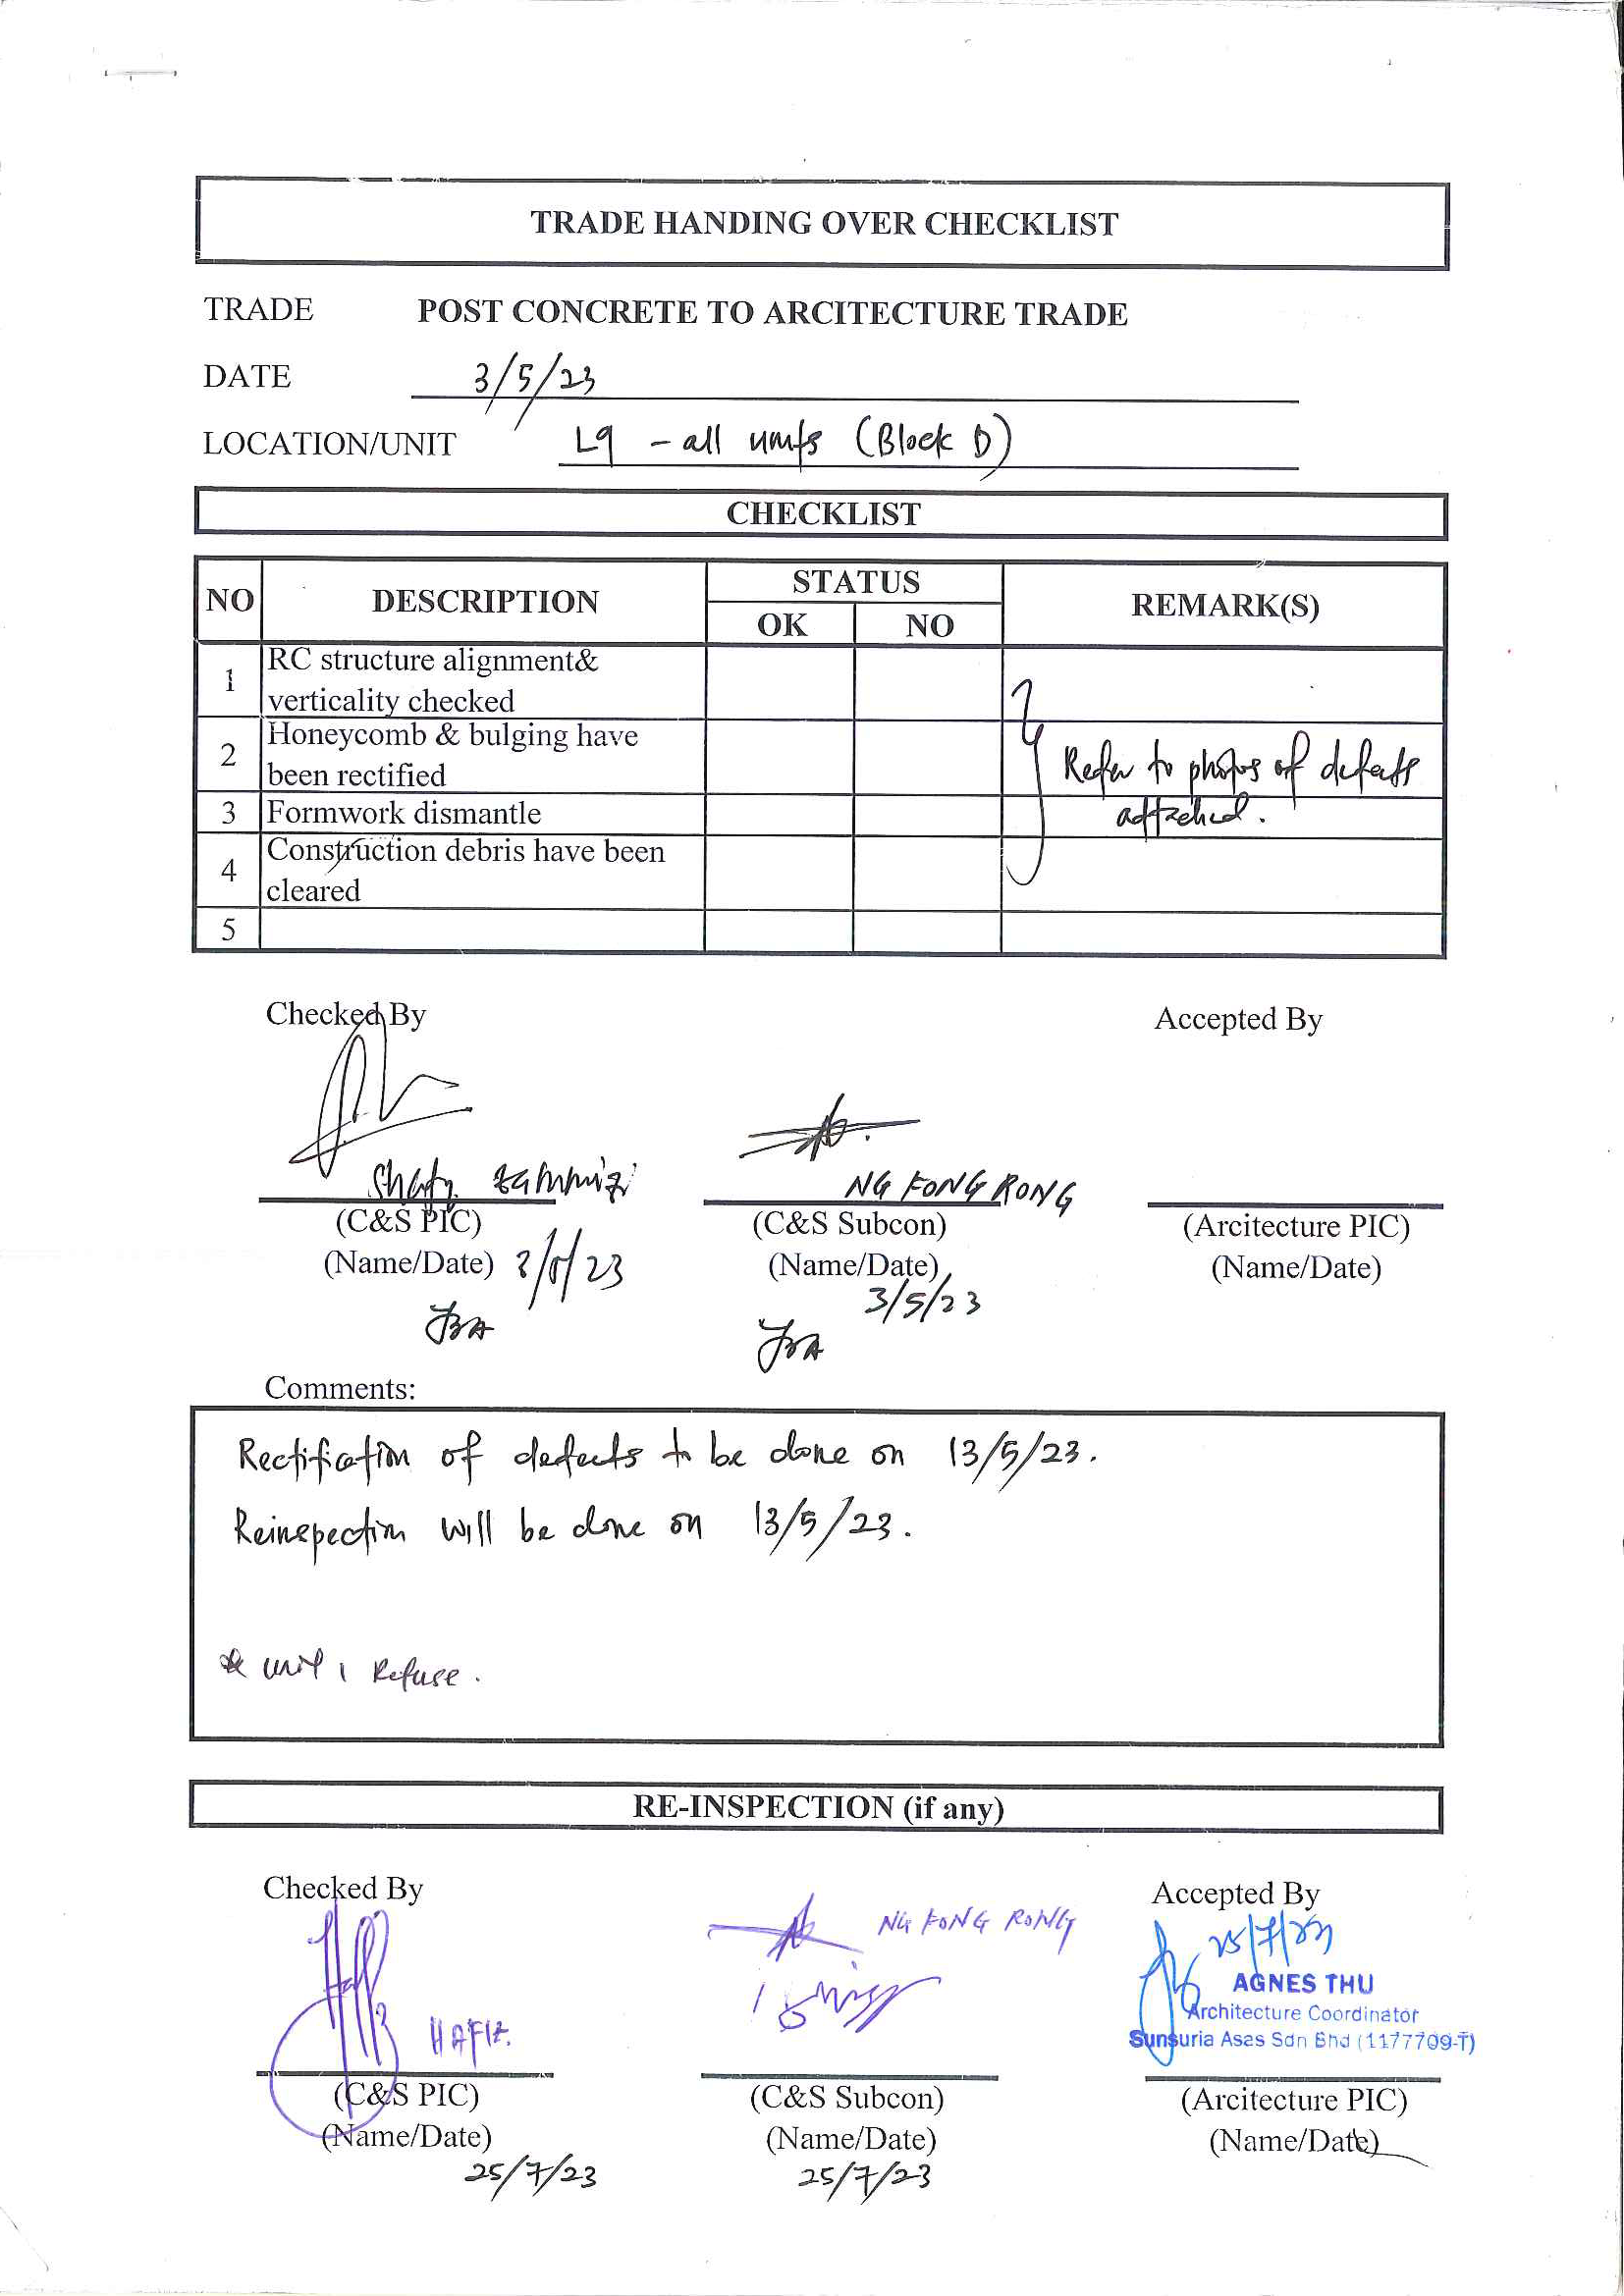 TRADE HANDING OVER CHECKLIST
TRADE POST CONCRETE TO ARCITECTURE TRADE
DATE 3/5/23
LOCATION/UNIT L9 - all units (Block D)
CHECKLIST
NO DESCRIPTION STATUS REMARK(S)
OK NO
1 RC structure alignment&
verticality checked
2 Honeycomb & bulging have
been rectified
Refer to photos of defects
3 Formwork dismantle
attached.
4 Construction debris have been
cleared
5
Checked By Accepted By
NG FONG RONG
(C&S PIC) (C&S Subcon) (Arcitecture PIC)
(Name/Date) (Name/Date) (Name/Date)
3/5/23
Comments:
Rectification of defects to be done on 13/5/23.
Reinspection will be done on 13/5/23.
unit 1 Refuse.
RE-INSPECTION (if any)
Checked By Accepted By
NG FONG RONG 25/7/23
AGNES THU
Architecture Coordinator
HAFIZ Sunsuria Asas Sdn Bhd (1177709-T)
(C&S PIC) (C&S Subcon) (Arcitecture PIC)
(Name/Date) (Name/Date) (Name/Date)
25/7/23 25/7/23